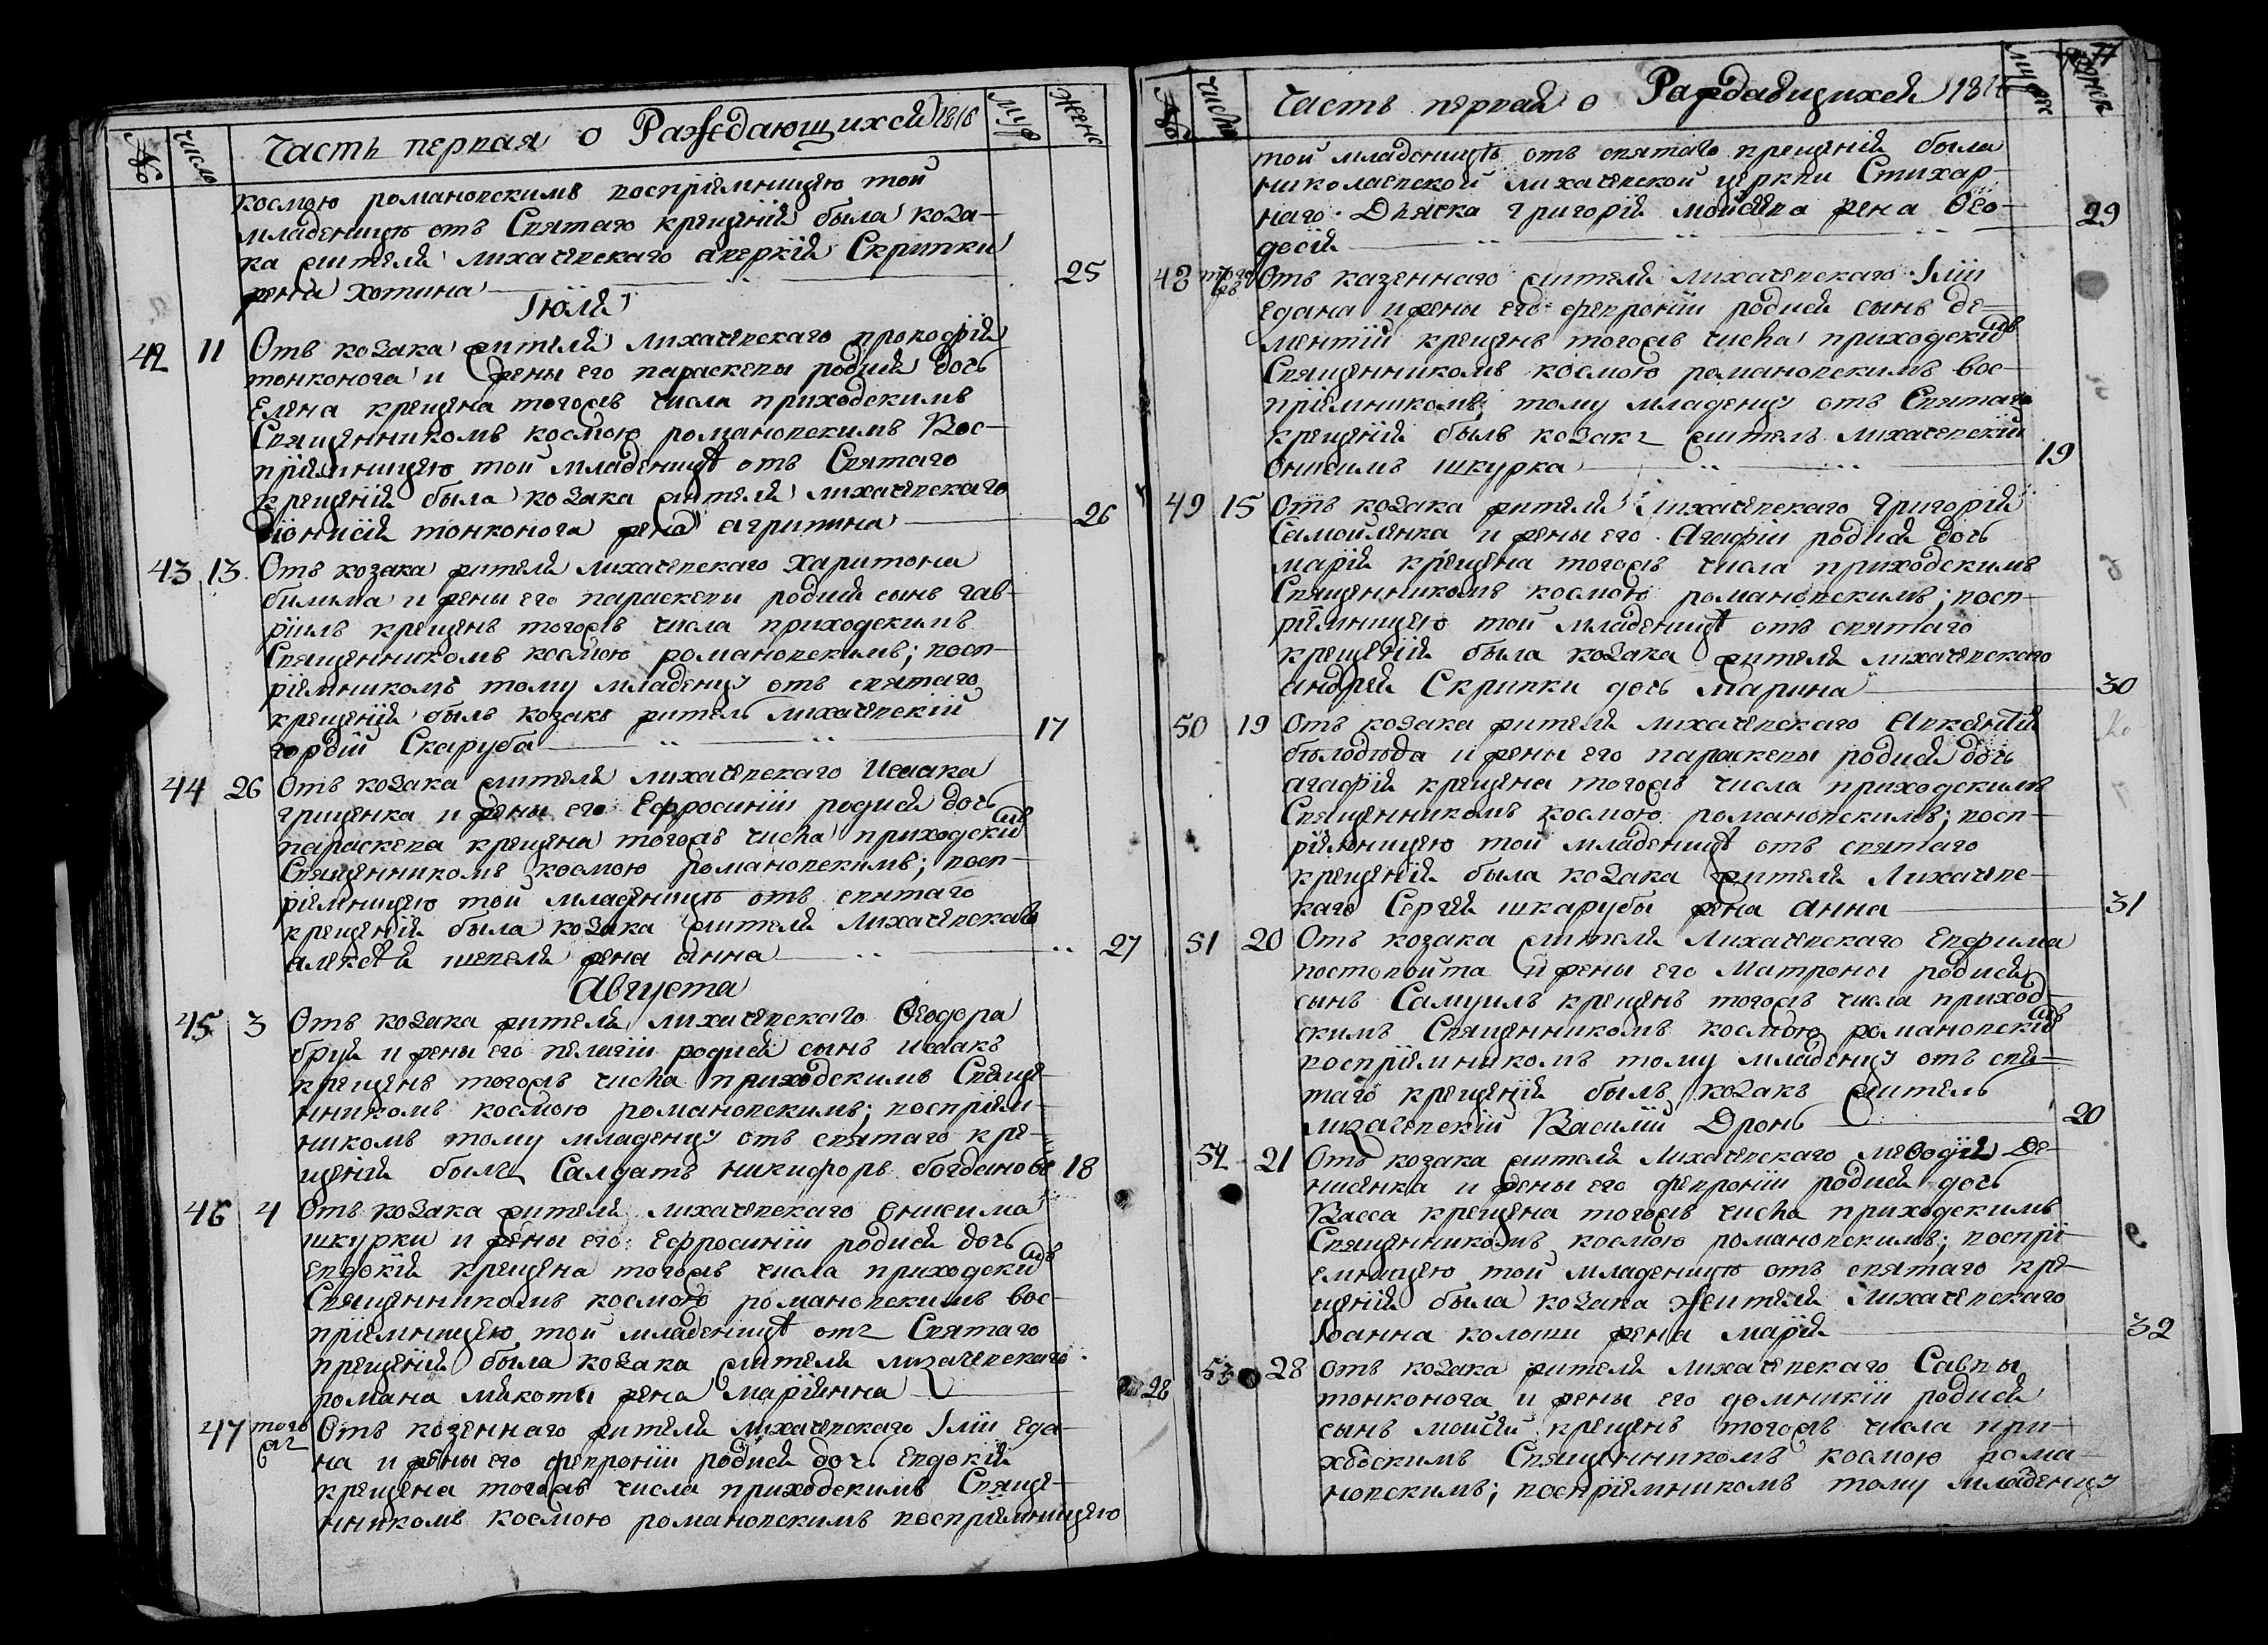 № число Часть первая о Раждающихся 1816 муж женс
космою романовскимъ воспріемницею той
младеницѣ отъ Святаго крещенія была коза-
ка жителя лихачевскаго аверкія Скрипки
жена хотина 25
Іюля
42 11 Отъ козака жителя лихачевскаго прокофія
тонконога и жены его параскевы родися дочь
Елена крещена тогожъ числа приходскимъ
Священникомъ космою романовскимъ Вос-
пріемницею той младеницѣ отъ Святаго
крещенія была козака жителя лихачевскаго
Діонисія тонконога жена агрипина 26
43 13 Отъ козака жителя лихачевскаго харитона
билыма и жены его параскевы родися сынъ гав-
ріилъ крещенъ тогожъ числа приходскимъ
Священникомъ космою романовскимъ; восп-
ріемникомъ тому младенцу отъ святаго
крещенія былъ козакъ житель лихачевскій
гордій Скаруба 17
44 26 Отъ козака жителя лихачевскаго Исаака
грищенка и жены его Ефросиніи родися дочь
параскева крещена тогожъ числа приходскимъ
Священникомъ космою романовскимъ; восп-
ріемницею той младеницѣ отъ святаго
крещенія была козака жителя лихачевскаго
алексѣя шевеля жена анна 27
Августа
45 3 Отъ козака жителя лихачевскаго Ѳеодора
бруя и жены его пелагіи родися сынъ исаакъ
крещенъ тогожъ числа приходскимъ Свяще-
нникомъ космою романовскимъ; воспріем-
никомъ тому младенцу отъ святаго кре-
щенія былъ Салдатъ никифоръ богдановъ 18
46 4 Отъ козака жителя лихачевскаго онисима
шкурки и жены его Ефросиніи родися дочь
Евдокія крещена тогожъ числа приходскимъ
Священникомъ космою романовскимъ вос-
пріемницею той младеницѣ отъ Святаго
крещенія была козака жителя лихачевскаго
романа макоты жена маріянна 28
47 того жъ Отъ козеннаго жителя лихачевскаго Іліи еда-
на и жены его февроніи родися дочь Евдокія
крещена тогожъ числа приходскимъ Свяще-
нникомъ космою романовскимъ воспріемницею
77
№ число Часть первая о Раждающихся 1816 мужес женск
той младеницѣ отъ святаго крещенія была
николаевской лихачевской церкви Стихар-
наго Дьячка григорія мойсѣева жена Ѳео-
досія 29
48 того жъ Отъ казеннаго жителя лихачевскаго Іліи
Едана и жены его февроніи родися сынъ де-
ментій крещенъ тогожъ числа приходскимъ
Священникомъ космою романовскимъ вос-
пріемникомъ; тому младенцу отъ Святаго
крещенія былъ козакъ житель лихачевскій
онисимъ шкурка 19
49 15 Отъ козака жителя лихачевскаго григорія
Самойленка и жены его Агафіи родися дочь
марія крещена тогожъ числа приходскимъ
Священникомъ космою романовскимъ; восп-
ріемницею той младеницѣ отъ святаго
крещенія была козака жителя лихачевскаго
андрея Скрипки дочь марина 30
50 19 Отъ козака жителя лихачевскаго Авксентія
бѣлодѣда и жены его параскевы родися дочь
агафія крещена тогожъ числа приходскимъ
Священникомъ космою романовскимъ; восп-
ріемницею той младеницѣ отъ святаго
крещенія была козака жителя Лихачевс-
каго Сергѣя шкарубы жена анна 31
51 20 Отъ козака жителя Лихачевскаго Евфима
востовойта и жены его Матроны родися
сынъ Самуилъ крещенъ тогожъ числа приход-
скимъ Священникомъ космою романовскимъ
воспріемникомъ тому младенцу отъ свя-
таго крещенія былъ козакъ житель
лихачевскій Василій Дронь 20
52 21 Отъ козака жителя Лихачевскаго меѳодія Де-
нисенка и жены его февроніи родися дочь
Васса крещена тогожъ числа приходскимъ
Священникомъ космою романовскимъ; воспрі-
емницею той младеницѣ отъ святаго кре-
щенія была козака жителя лихачевскаго
Іоанна колоши жена марія 32
53 28 Отъ козака жителя лихачевскаго Саввы
тонконога и жены его домникіи родися
сынъ мойсей крещенъ тогожъ числа при-
ходскимъ Священникомъ космою рома-
новскимъ; воспріемникомъ тому младенцу